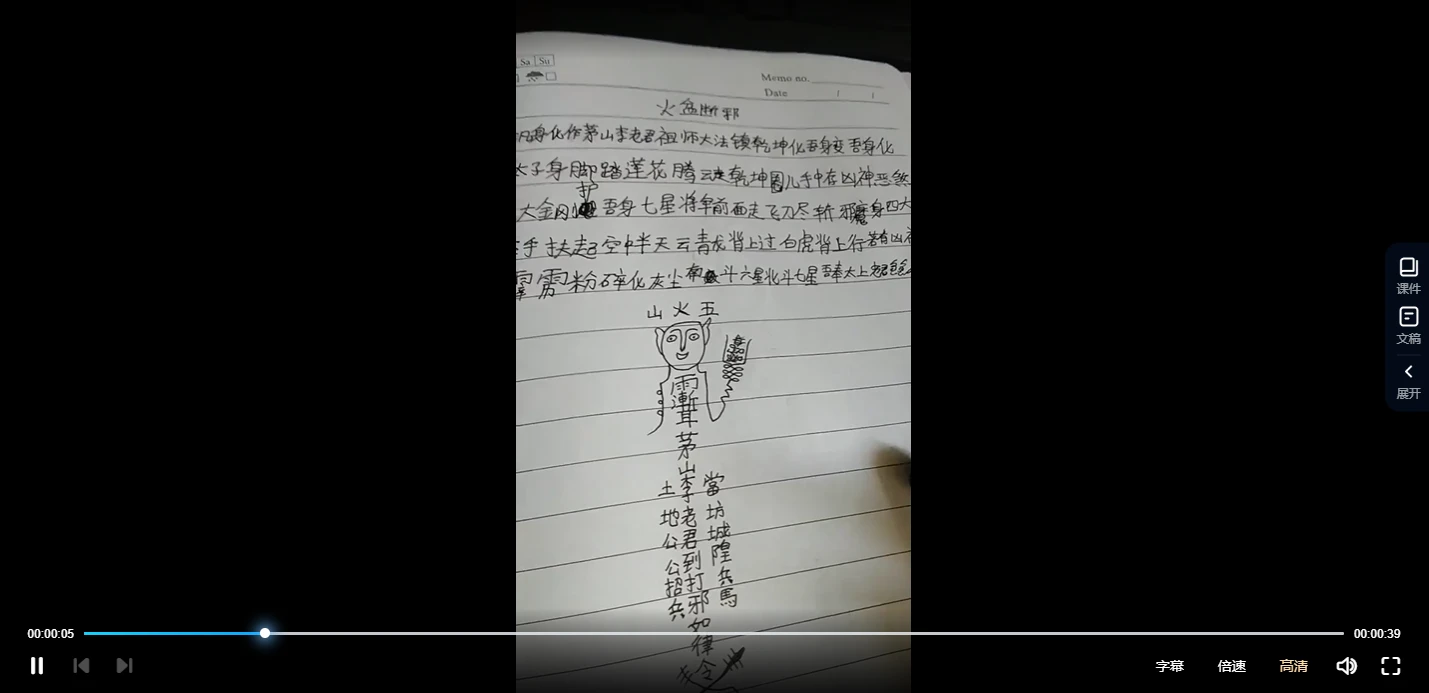 Sa Su
Memo no.
Date / /
火盆断邪
凡身化作茅山李老君祖师大法镇乾坤化吾身变吾身化
太子身脚踏莲花腾云走乾坤圈儿手中存凶神恶煞
护
大金刚 吾身七星将军前面走飞刀尽斩邪魔身四大
手扶起空中半天云青龙背上过白虎背上行若有凶神
霹雳粉碎化灰尘南斗六星北斗七星吾奉太上老君
山火五
雨
漸
耳
茅
山
李老君到打邪如律令
土地公公招兵
當坊城隍兵馬
课件
文稿
展开
00:00:05
00:00:39
字幕
倍速
高清